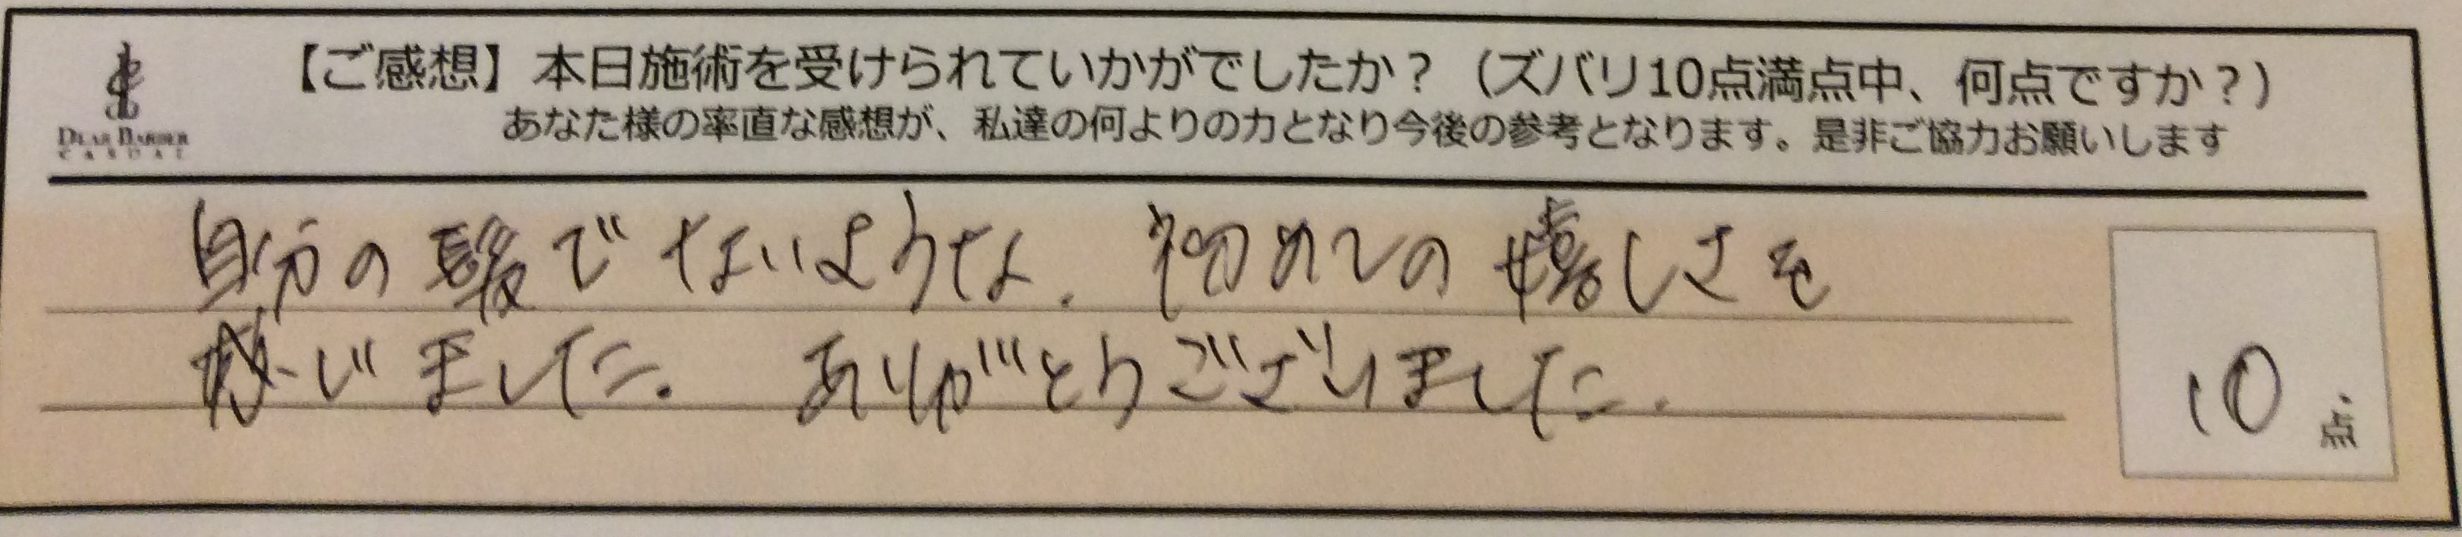 【ご感想】本日施術を受けられていかがでしたか？（ズバリ10点満点中、何点ですか？）
あなた様の率直な感想が、私達の何よりの力となり今後の参考となります。是非ご協力お願いします
DEAR BARBER
CASUAL
自分の髪でないような、初めての嬉しさを
感じました。ありがとうございました。
10点